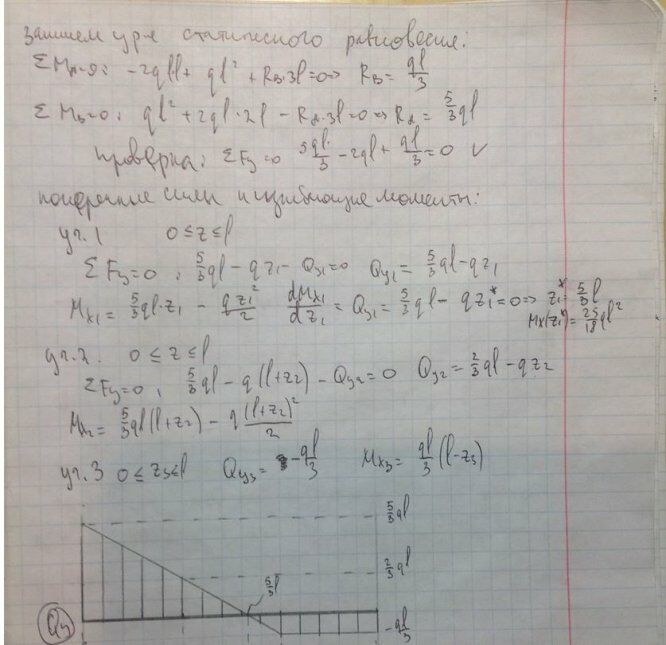 Запишем ур-я статического равновесия:
ΣM_A=0: -2ql·l + ql² + R_B·3l=0 => R_B = ql/3
ΣM_B=0: ql² + 2ql·2l - R_A·3l=0 => R_A = 5/3 ql
Проверка: ΣF_y=0 5ql/3 - 2ql + ql/3 = 0 ✓
поперечные силы и изгибающие моменты:
уч.1 0≤z≤l
ΣF_y=0; 5/3 ql - qz₁ - Q_y₁=0 Q_y₁ = 5/3 ql - qz₁
M_x₁ = 5/3 ql·z₁ - qz₁²/2 dM_x₁/dz₁ = Q_y₁ = 5/3 ql - qz₁* = 0 => z₁* = 5/3 l
M_x(z₁*) = 25/18 ql²
уч.2. 0≤z≤l
ΣF_y=0; 5/3 ql - q(l+z₂) - Q_y₂ = 0 Q_y₂ = 2/3 ql - qz₂
M_x₂ = 5/3 ql(l+z₂) - q(l+z₂)²/2
уч.3 0≤z₃≤l Q_y₃ = -ql/3 M_x₃ = ql/3 (l-z₃)
5/3 ql
2/3 ql
5/3 l
Q_y
-ql/3